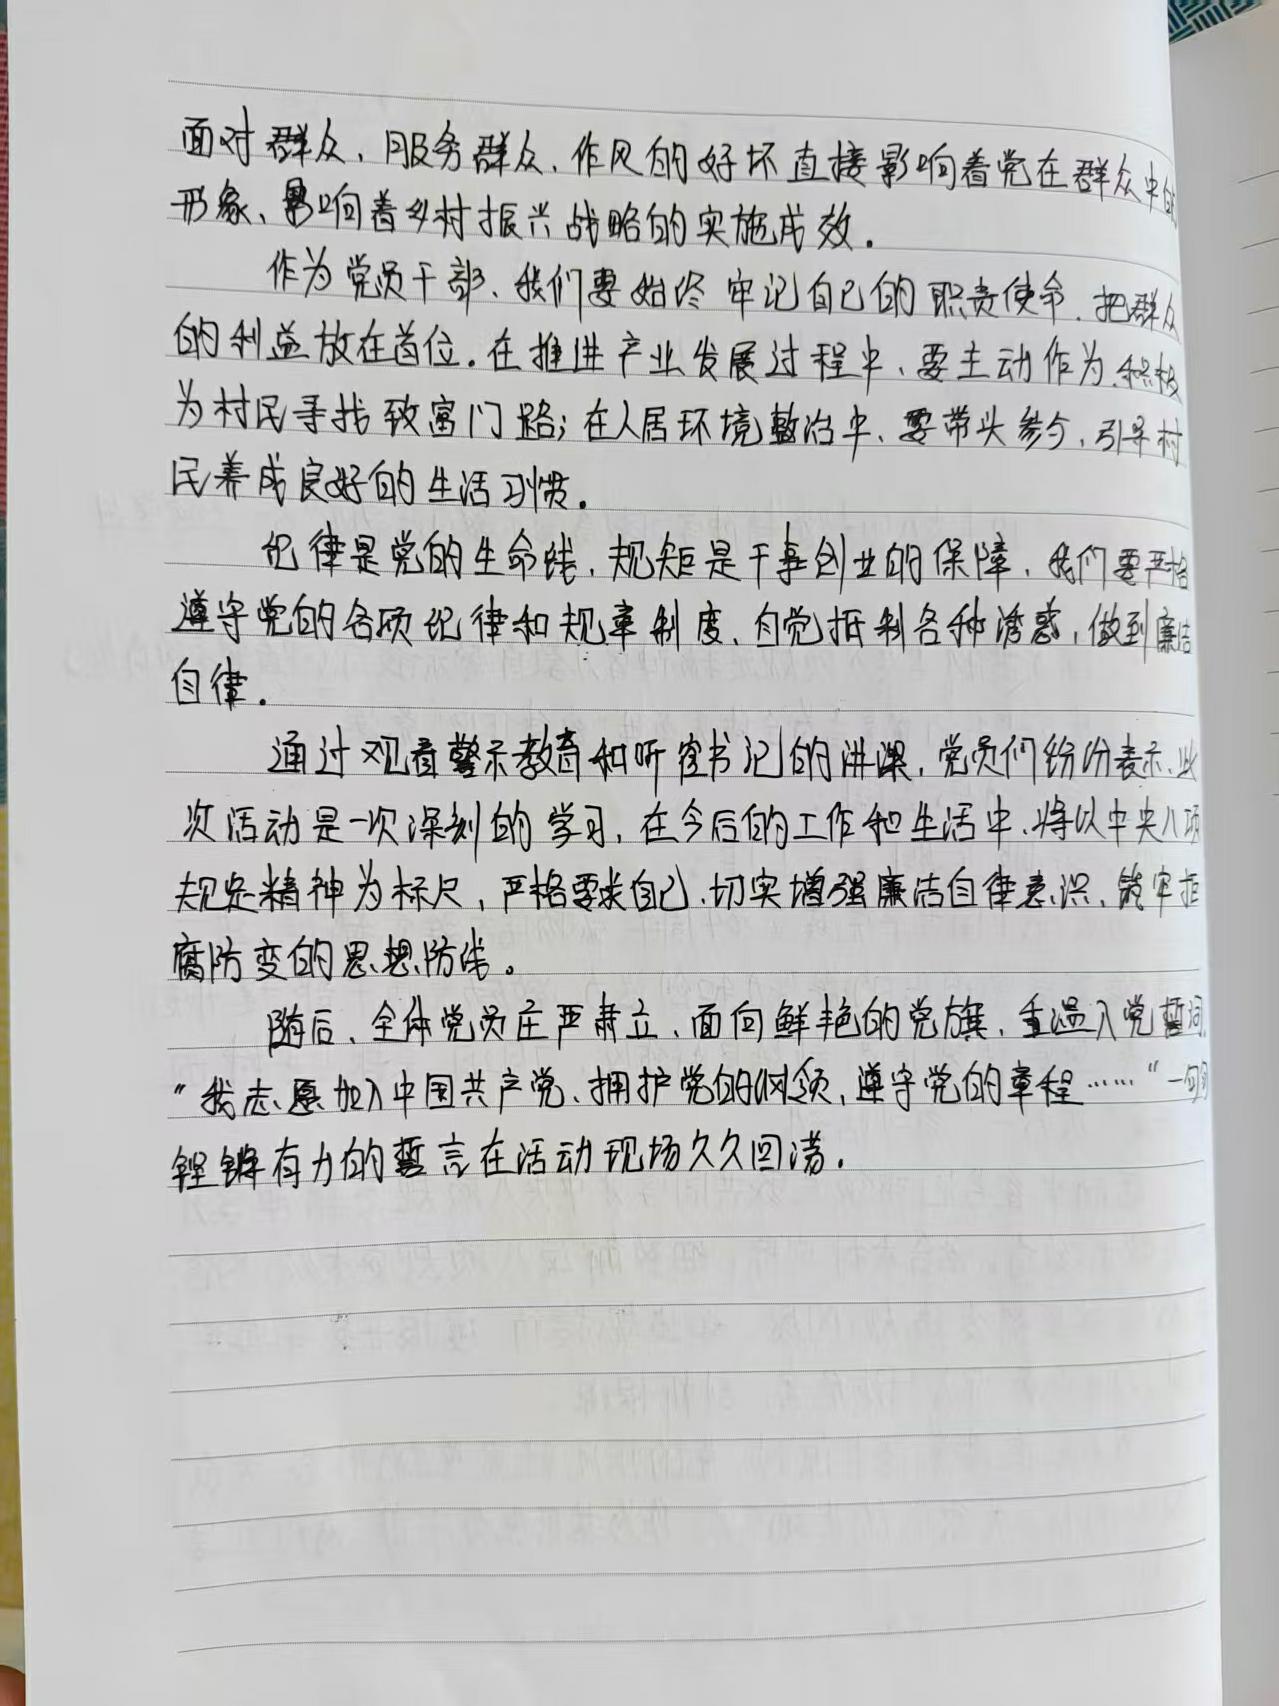 面对群众、服务群众,作风的好坏直接影响着党在群众中的
形象、影响着乡村振兴战略的实施成效。
作为党员干部、我们要始终牢记自己的职责使命,把群众
的利益放在首位。在推进产业发展过程中、要主动作为、积极
为村民寻找致富门路;在人居环境整治中、要带头参与,引导村
民养成良好的生活习惯。
纪律是党的生命线,规矩是干事创业的保障,我们要严格
遵守党的各项纪律和规章制度、自觉抵制各种诱惑,做到廉洁
自律。
通过观看警示教育和听窄书记的讲课,党员们纷纷表示、此
次活动是一次深刻的学习,在今后的工作和生活中、将以中央八项
规定精神为标尺,严格要求自己、切实增强廉洁自律意识、筑牢拒
腐防变的思想防线。
随后、全体党员庄严肃立、面向鲜艳的党旗、重温入党誓词
“我志愿加入中国共产党、拥护党的纲领,遵守党的章程……”一句句
铿锵有力的誓言在活动现场久久回荡.